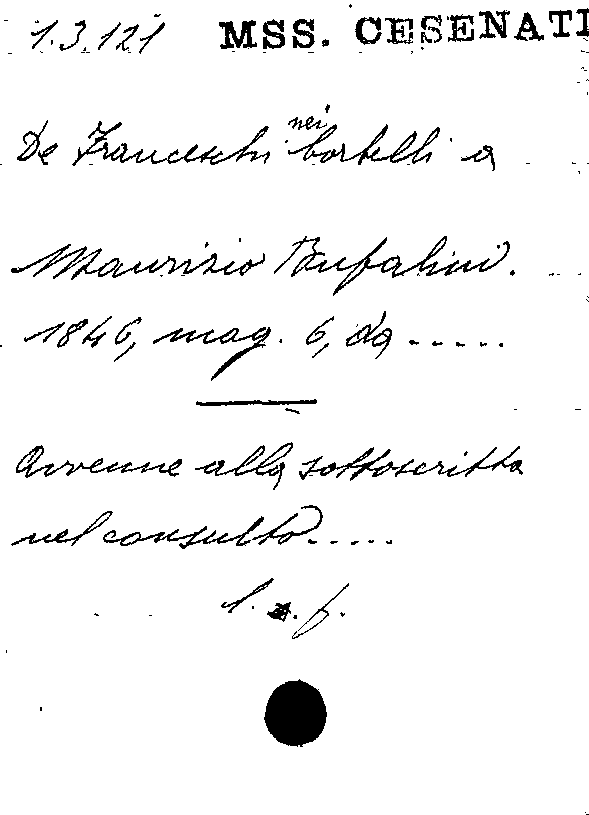 1.3.121 MSS. CESENATI
De Franceschi nei Cortelli a
Maurizio Bufalini.
1846, mag. 6, da .....
Avvenne alla sottoscritta
nel consulto.....
l. a. f.